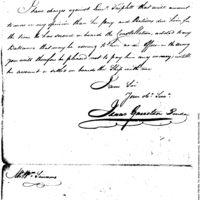 I have charges against Lieu. Triplett that will amount
to more in my opinion than his pay and Rations due him for
the time he has served on board the Constellation, added to any
Balance that may be coming to him as an Officer in the army
you will therefore be pleased not to pay him any money untill
his account is settled on board the Ship with me
I am Sir
Your Ob. Serv.
Isaac Garretson Purser
Mr. Wm. Simmons